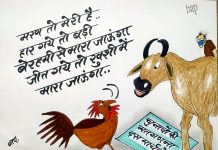 मरण तो मेरी है..
हार गये तो बड़ी
बेरहमी से मारा जाऊंगा
जीत गये तो खुशी में
मारा जाऊंगा..
चुनावों की